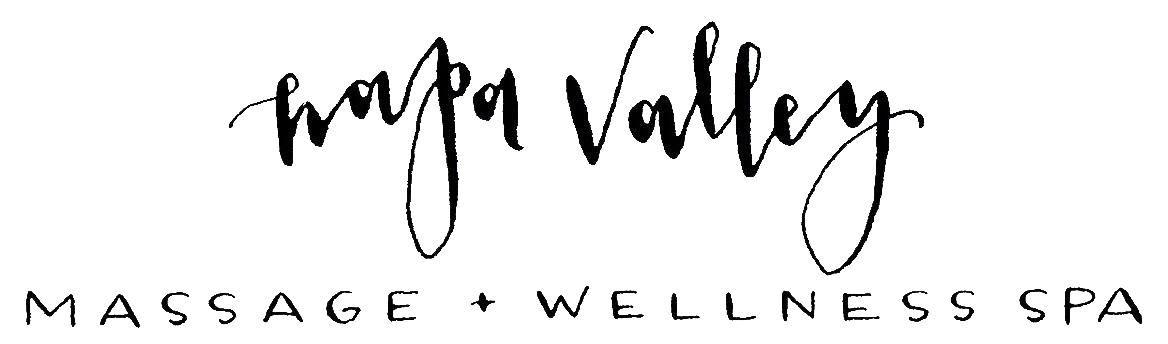 napa valley
MASSAGE + WELLNESS SPA